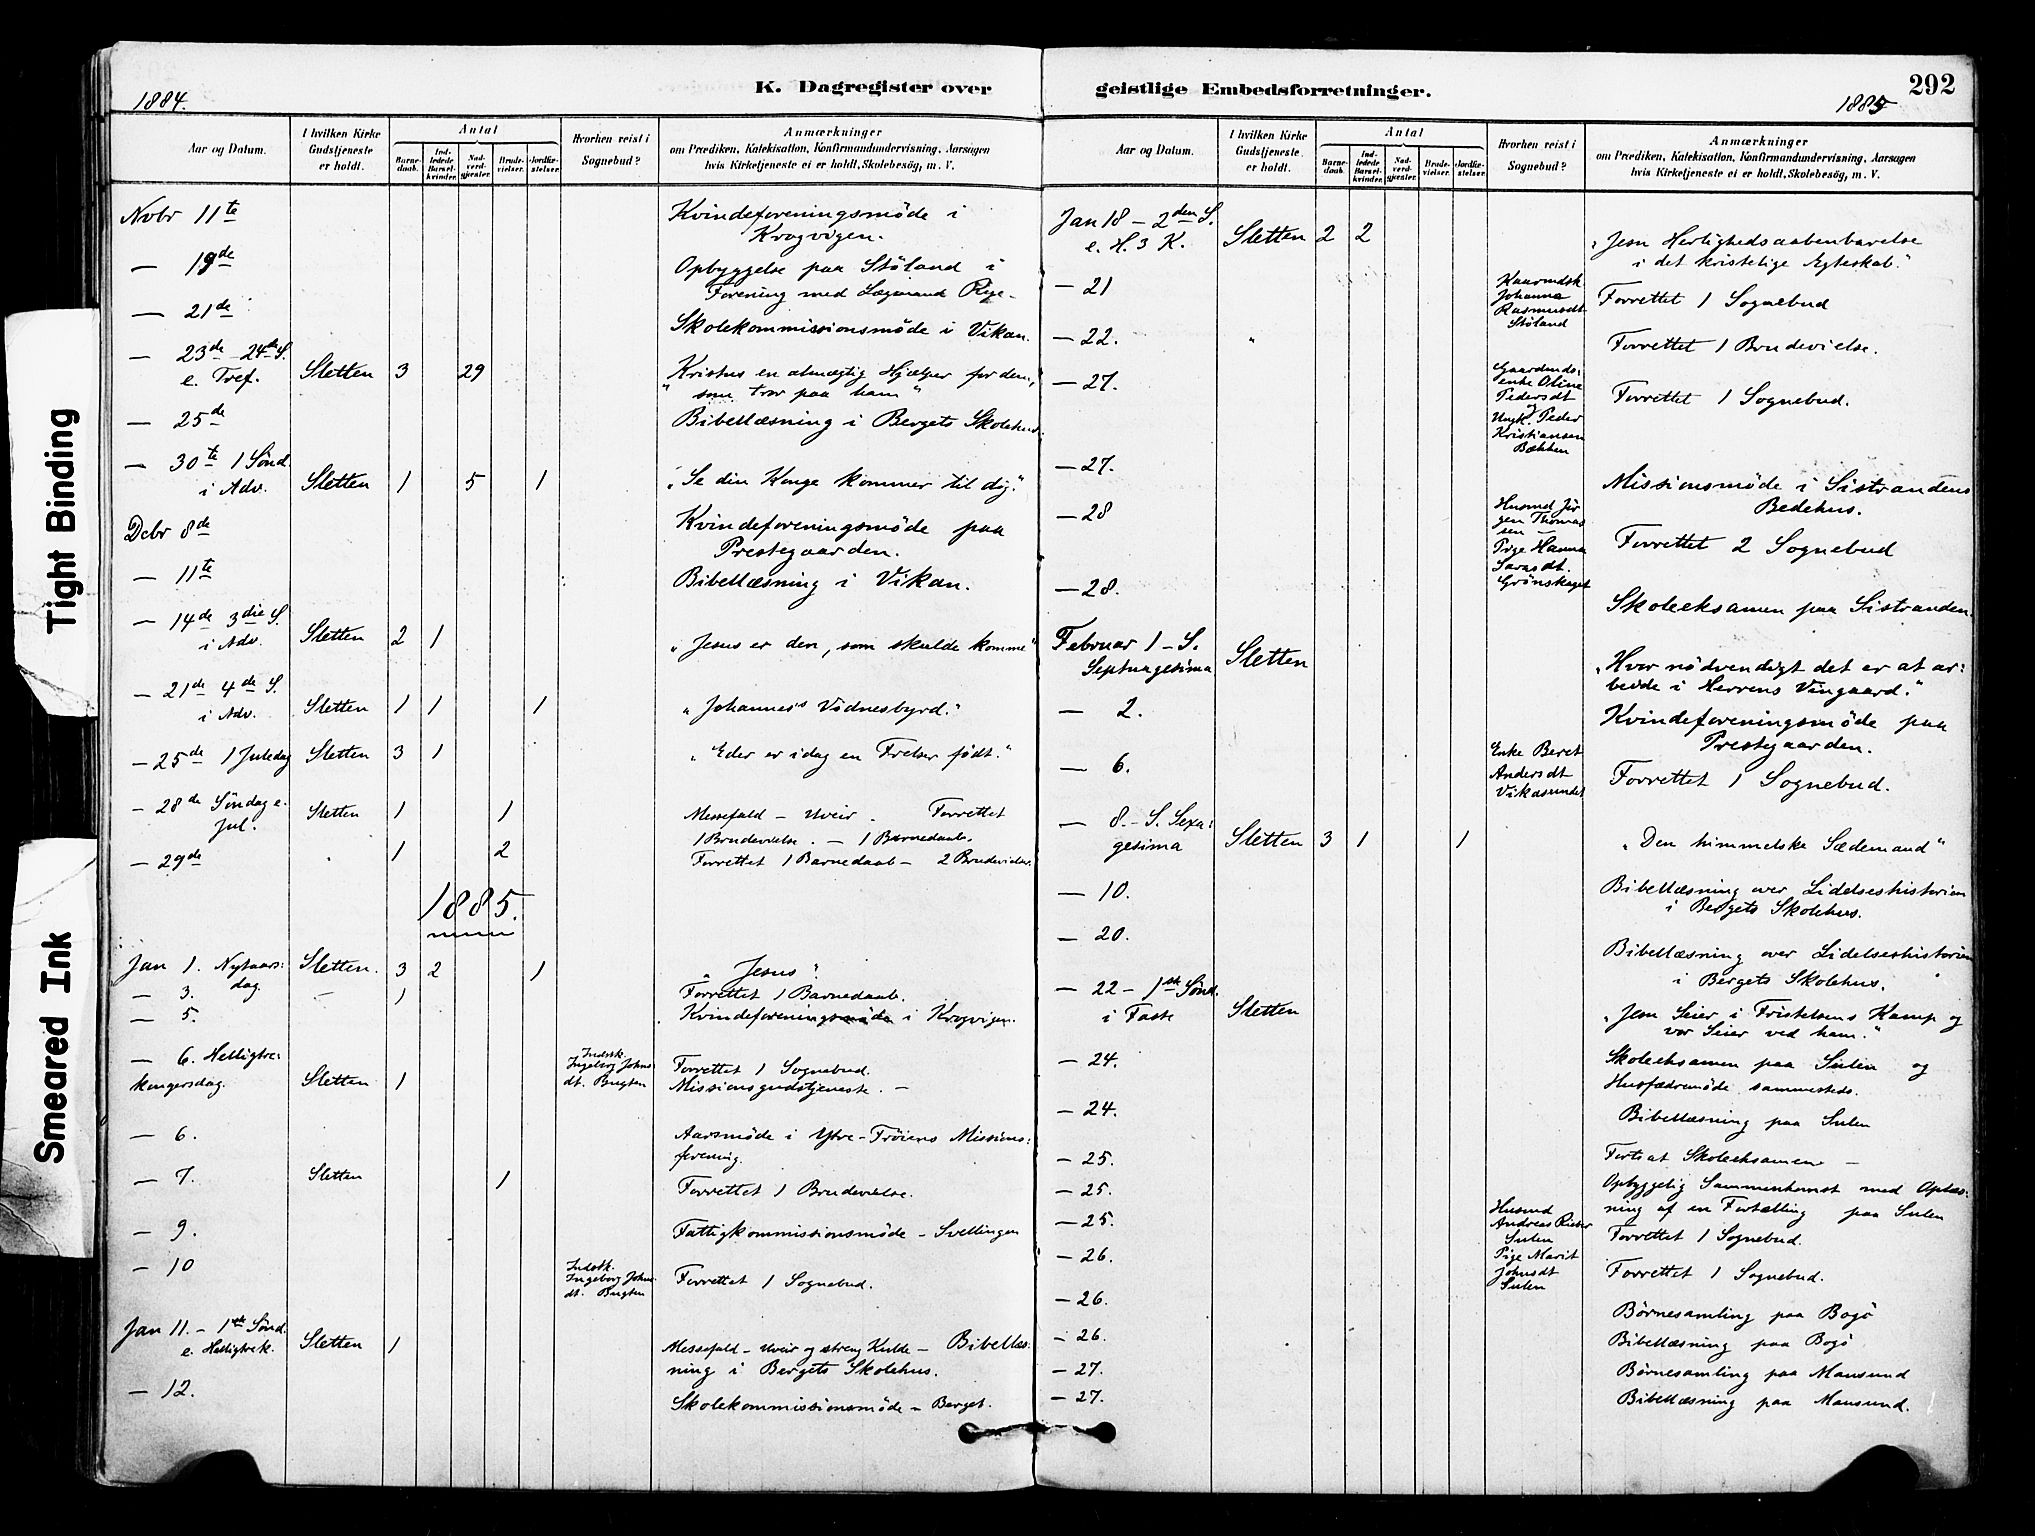 Tight Binding
Smeared Ink
292
1884.
K. Dagregister over
Aar og Datum.
I hvilken Kirke Gudstjeneste er holdt.
Antal
Barne-daab.
Ind-ledede Barsel-kvinder.
Nad-verd-gjæster.
Brude-vielser.
Jordfæ-stelser.
Hvorhen reist i Sognebud?
Anmærkninger
om Prædiken, Katekisation, Konfirmandundervisning, Aarsagen
hvis Kirketjeneste ei er holdt, Skolebesøg, m. V.
Novbr 11te Kvindeforeningsmøde i
Krogvigen.
— 19de Opbyggelse paa Støland i
Forening med Lægmand Rye.
— 21de Skolekommissionsmøde i Vikan.
— 23de – 24de S.
e. Tref. Sletten 3 29 "Kristus en almægtig Hjælper for dem,
som tror paa ham"
— 25de Bibellæsning i Bergets Skolehus.
— 30te 1 Sønd.
i Adv. Sletten 1 5 1 "Se din Konge kommer til dig."
Debr 8de Kvindeforeningsmøde paa
Prestegaarden.
— 11te Bibellæsning i Vikan.
— 14de 3die S.
i Adv. Sletten 2 1 "Jesus er den, som skulde komme"
— 21de 4de S.
i Adv. Sletten 1 1 1 "Johannes's Vidnesbyrd."
— 25de 1 Juledag Sletten 3 1 "Eder er idag en Frelser født."
— 28de Søndag e.
Jul. Sletten 1 1 Messefald – Uveir. Forrettet
1 Brudevielse. – 1 Barnedaab.
— 29de 1 2 Forrettet 1 Barnedaab – 2 Brudevielser.
1885.
Jan 1. Nytaars-
dag. Sletten. 3 2 1 "Jesus".
— 3. – 1 Forrettet 1 Barnedaab.
— 5. Kvindeforeningsmøde i Krogvigen.
— 6. Helligtre-
kongersdag. Sletten 1 Indstk.
Ingeborg Johns-
dt. Bugten Forrettet 1 Sognebud.
Missionsgudstjeneste. –
— 6. Aarsmøde i Ytre-Frøiens Missions-
forening.
— 7. Sletten 1 Forrettet 1 Brudevielse.
— 9. Fattigkommissionsmøde – Svellingen
— 10 Indstk.
Ingeborg Johns-
dt. Bugten Forrettet 1 Sognebud.
Jan 11. – 1ste Sønd.
e. Helligtrek. Sletten 1 Messefald – Uveir og streng Kulde – Bibellæs-
ning i Bergets Skolehus.
— 12. Skolekommissionsmøde – Berget.
geistlige Embedsforretninger.
1885
Aar og Datum.
I hvilken Kirke Gudstjeneste er holdt.
Antal
Barne-daab.
Ind-ledede Barsel-kvinder.
Nad-verd-gjæster.
Brude-vielser.
Jordfæ-stelser.
Hvorhen reist i Sognebud?
Anmærkninger
om Prædiken, Katekisation, Konfirmandundervisning, Aarsagen
hvis Kirketjeneste ei er holdt, Skolebesøg, m. V.
Jan 18 – 2den S.
e. H. 3 K. Sletten 2 2 "Jesu Herlighedsaabenbarelse
i det kristelige Ægteskab."
— 21 Johanna
Rasmusdt.
Støland Forrettet 1 Sognebud
— 22. " Forrettet 1 Brudevielse.
— 27. Gaardmds-
enke Oline
Pedersdt
og
Ungk. Peder
Kristiansen
Bækken Forrettet 1 Sognebud.
— 27. Missionsmøde i Sistrandens
Bedehus.
— 28 Husmd Jør-
gen Thomas-
sen –
Pige Hanna
Sarasdt.
Grønskaget Forrettet 2 Sognebud
— 28. Skoleeksamen paa Sistranden.
Februar 1 – S.
Septuagesima Sletten "Hvor nødvendigt det er at ar-
beide i Herrens Vingaard."
— 2. Kvindeforeningsmøde paa
Prestegaarden.
— 6. Enke Beret
Andersdt
Vikasundet Forrettet 1 Sognebud.
— 8. – S. Sexa-
gesima Sletten 3 1 1 "Den himmelske Sædemand"
— 10. Bibellæsning over Lidelseshistorien
i Bergets Skolehus.
— 20. Bibellæsning over Lidelseshistorien
i Bergets Skolehus.
— 22 – 1ste Sønd.
i Faste Sletten "Jesu Seier i Fristelsens Kamp og
vor Seier ved ham."
— 24. Skoleeksamen paa Sulen og
Husfædremøde sammesteds.
— 24. Bibellæsning paa Sulen
— 25. Fortsat Skoleeksamen –
— 25. Opbyggelig Sammenkomst med Oplæs-
ning af en Fortælling paa Sulen
— 25. Husmd
Andreas
Sulen Forrettet 1 Sognebud.
— 26. Pige Marit
Johnsdt
Sulen Forrettet 1 Sognebud.
— 26. Børnesamling paa Bogø
— 26. Bibellæsning paa Bogø
— 27. Børnesamling paa Mausund
— 27. Bibellæsning paa Mausund.